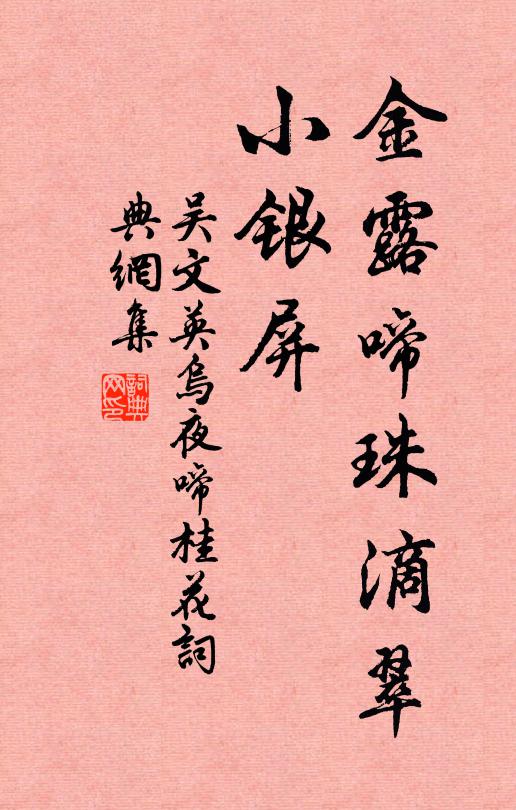 金露啼珠滴翠
小銀屏
吳文英烏夜啼桂花詞
典網集
詞典
网印